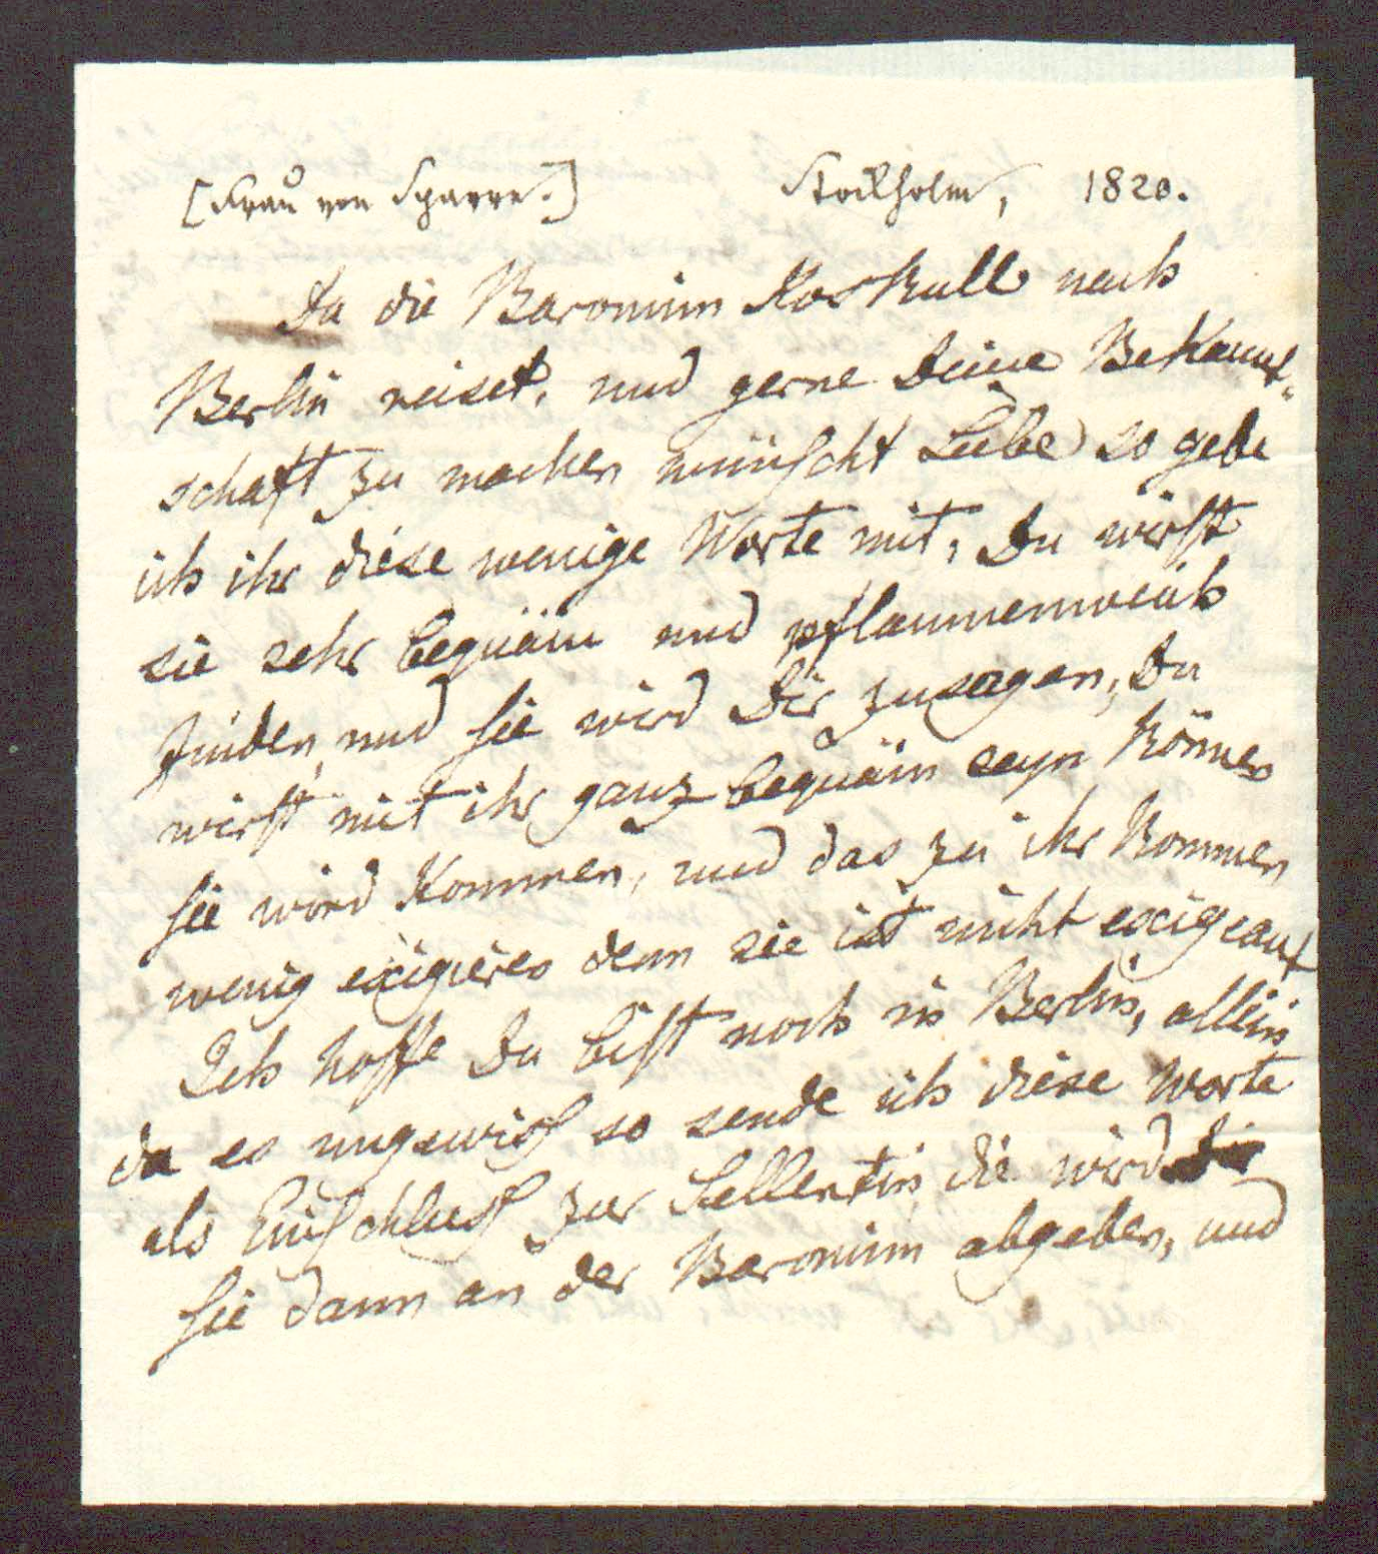 [Frau von Sparre.] Stockholm, 1820.
Da die Baroninn Koskull nach
Berlin reiset, und gerne Deine Bekannt-
schaft zu machen wünscht Liebe so gebe
ich ihr diese wenige Worte mit, Du wirst
sie sehr bequäm und pflaumenweich
finden, und sie wird Dir zusagen, Du
wirst mit ihr ganz bequäm seyn können
sie wird kommen, und das zu ihr kommen
wenig exigieren denn sie ist nicht exigeant
Ich hoffe Du bist noch in Berlin, allein
da es ungewiß so sende ich diese Worte
als Einschluß zur Sellentin, die wird
sie dann an der Baroninn abgeben, und